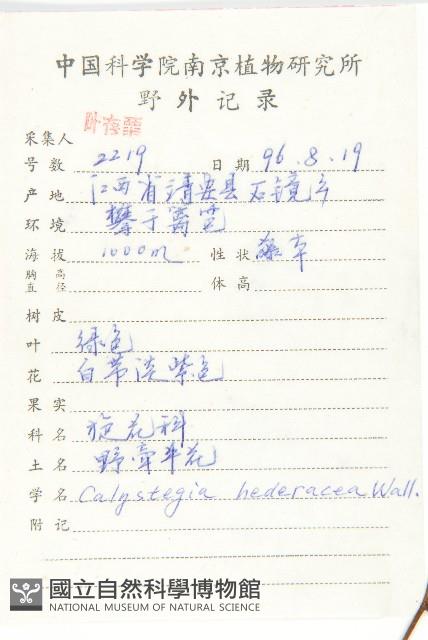 中国科学院南京植物研究所
野外记录
采集人
号数 2219 日期 96.8.19
产地 江西省靖安县石镜寺
环境 攀于篱笆
海拔 1000m 性状 藤本
胸高直径 体高
树皮
叶 绿色
花 白带淡紫色
果实
科名 旋花科
土名 野牵牛花
学名 Calystegia hederacea Wall.
附记
國立自然科學博物館
NATIONAL MUSEUM OF NATURAL SCIENCE